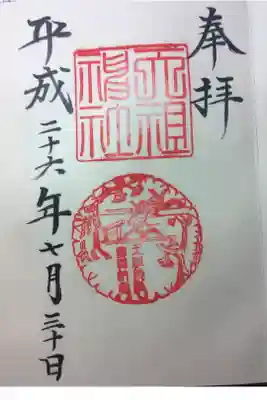 奉拝
太祖
神社
平成二十六年七月三十日